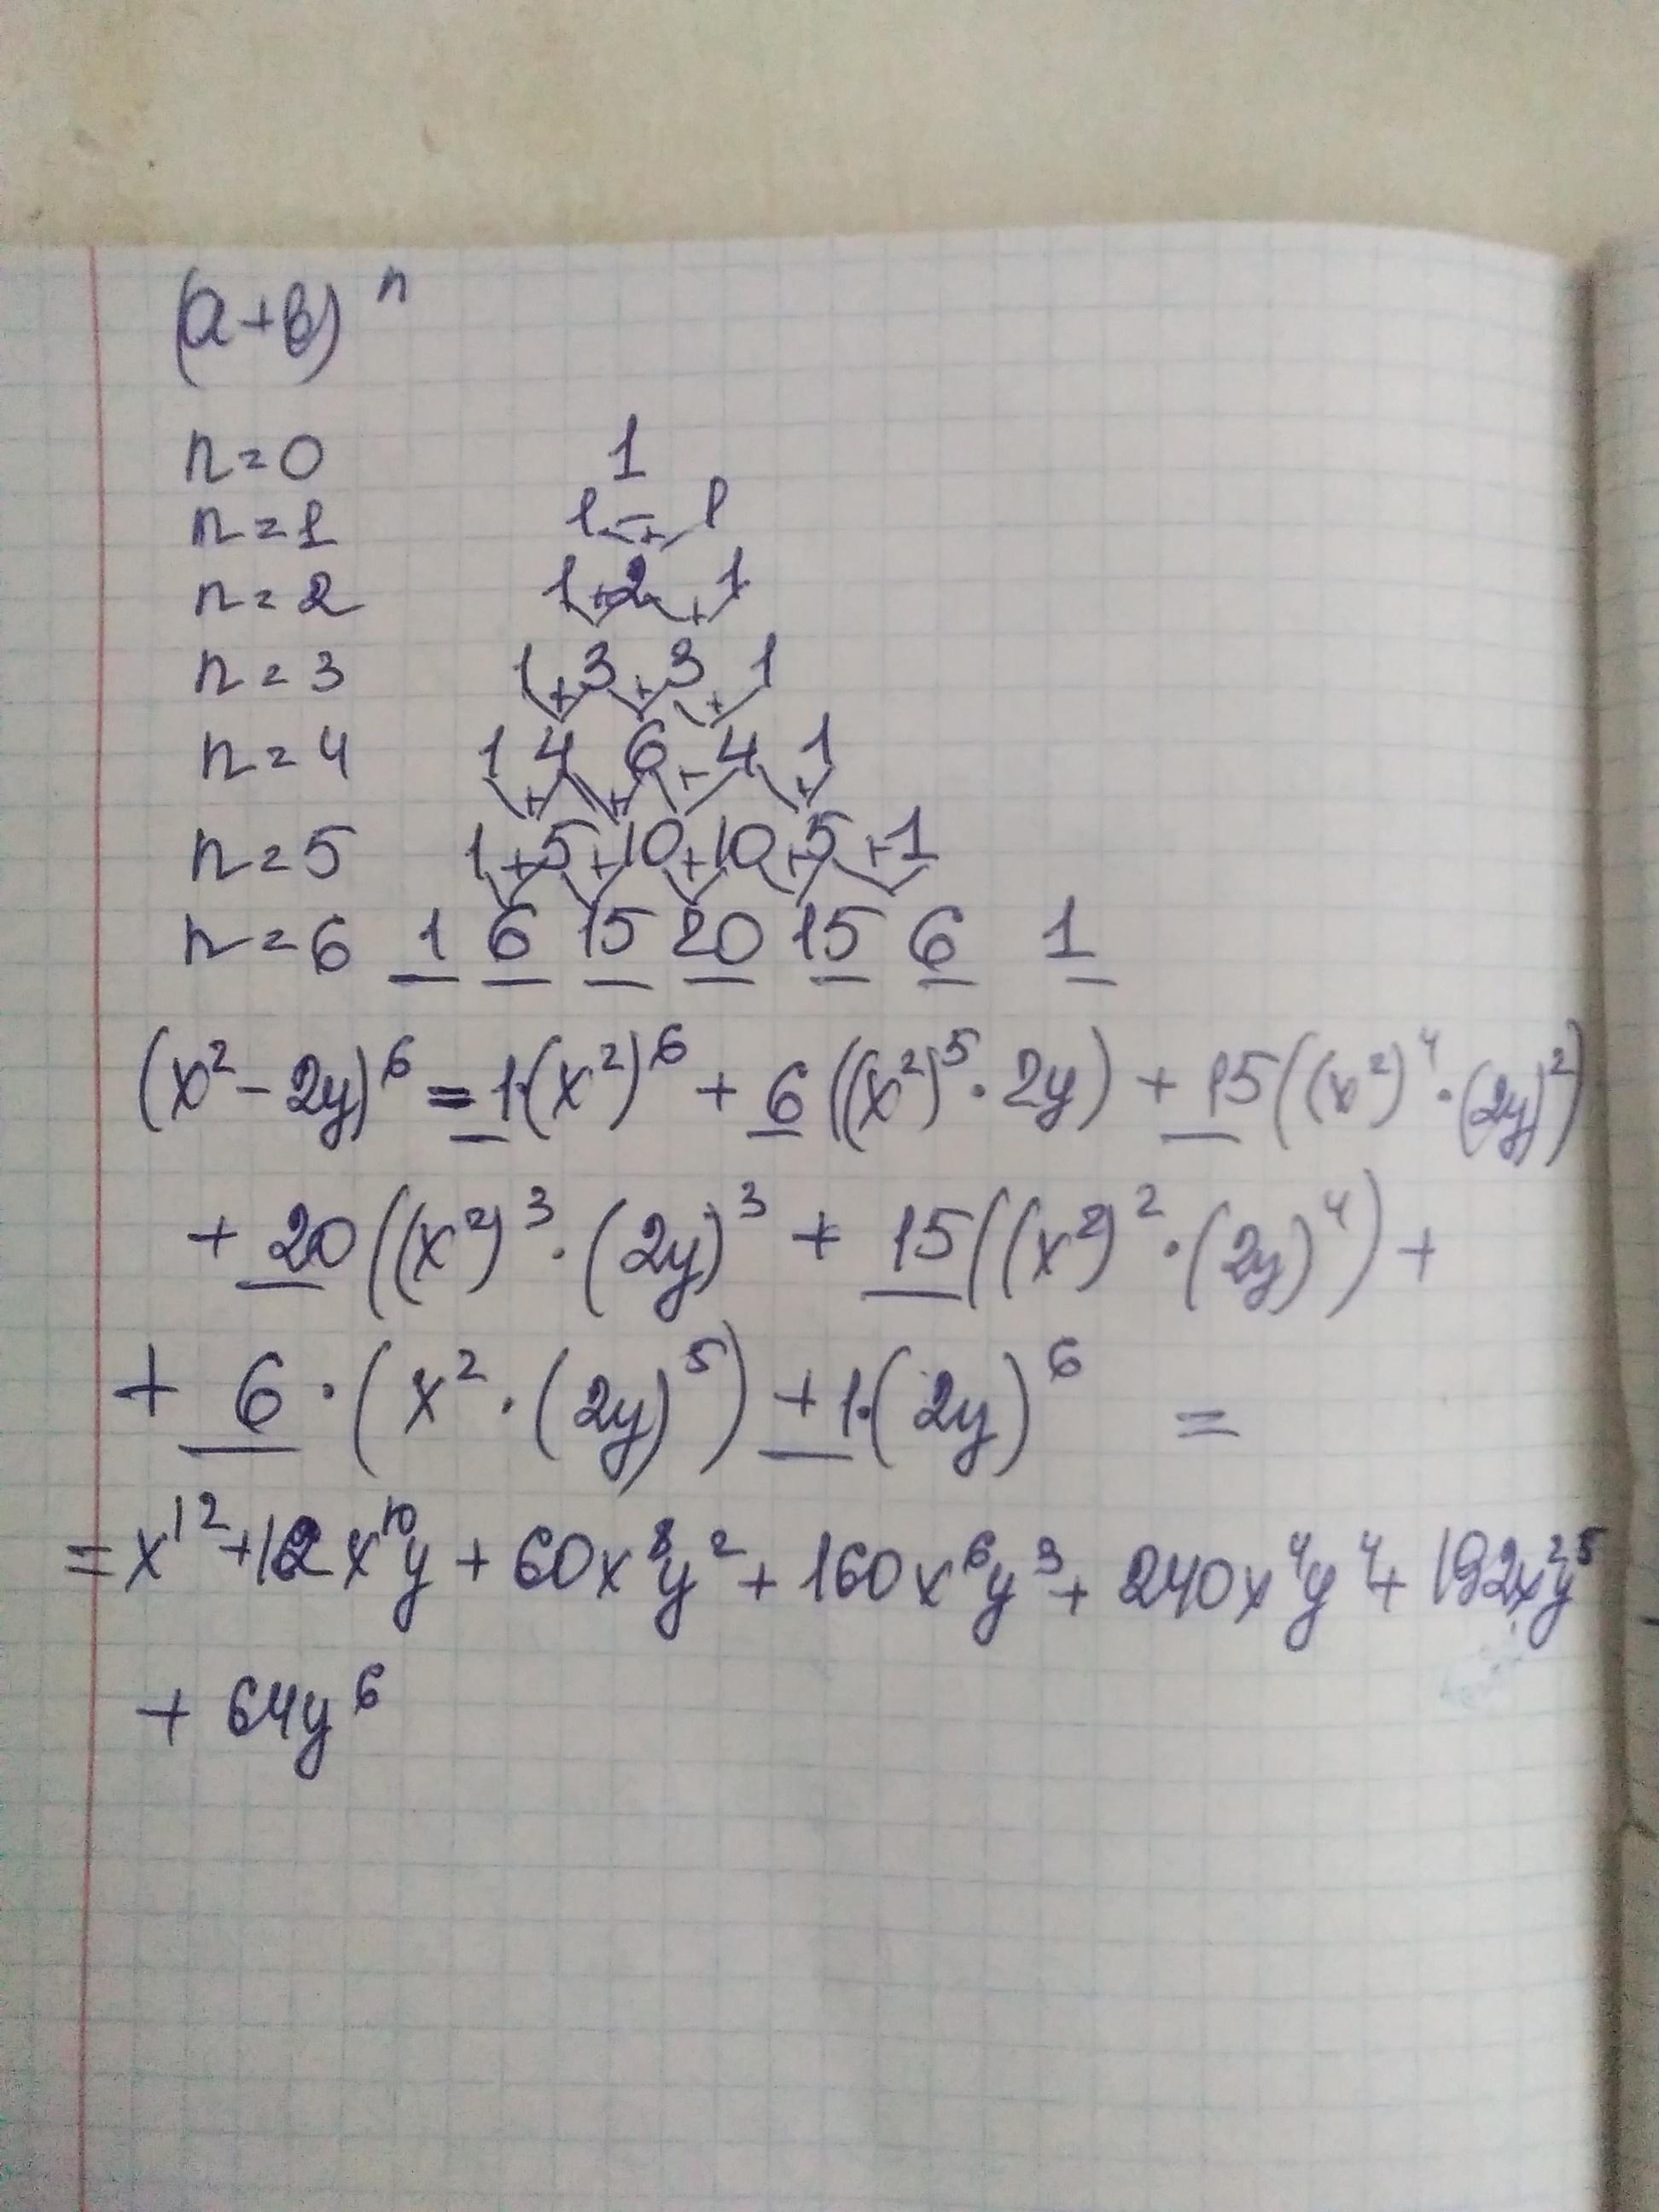 (a+b)ⁿ
n=0 1
n=1 1 + 1
n=2 1 + 2 + 1
n=3 1 + 3 + 3 + 1
n=4 1 4 6 4 1
n=5 1+5+10+10+5+1
n=6 1 6 15 20 15 6 1
(x²-2y)⁶=1·(x²)⁶ + 6((x²)⁵·2y) + 15((x²)⁴·(2y)²)
+ 20((x²)³·(2y)³ + 15((x²)²·(2y)⁴) +
+ 6·(x²·(2y)⁵) +1·(2y)⁶ =
=x¹²+12x¹⁰y + 60x⁸y² + 160x⁶y³ + 240x⁴y⁴ + 192x²y⁵
+ 64y⁶